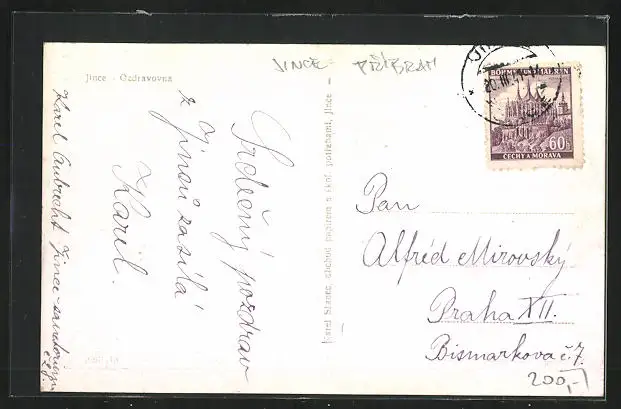 Jince - Ozdravovna
JINCE - PŘÍBRAM
BÖHMEN UND MÄHREN
60h
ČECHY A MORAVA
Srdečný pozdrav
z Jinců zasílá
Karel.
Karel Aubrecht Jince-sanatorium
č. 7.
Karel Slanec, obchod papírem a škol. potřebami, Jince
Pan
Alfréd Mirovský
Praha XII.
Bismarkova č. 7.
200,-